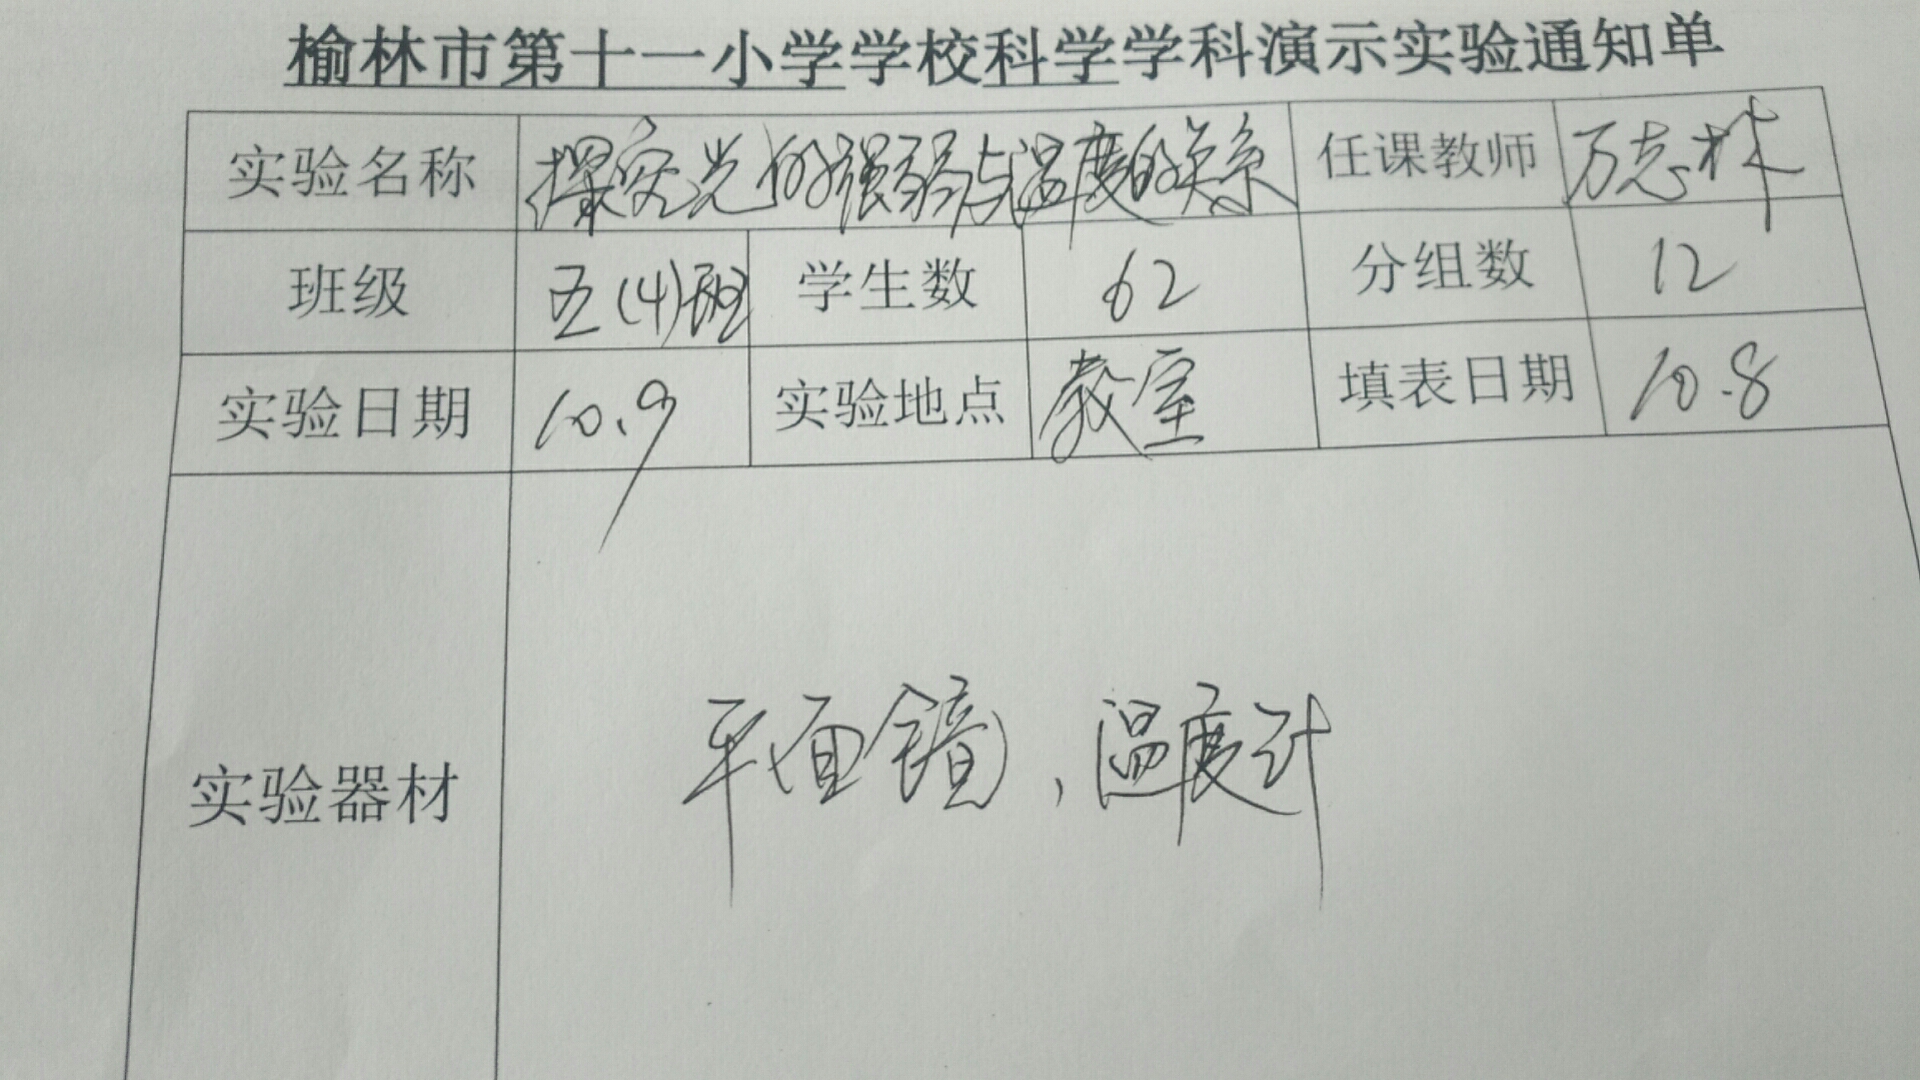 榆林市第十一小学学校科学学科演示实验通知单
实验名称 探究光的强弱与温度的关系 任课教师 万志林
班级 五(4)班 学生数 62 分组数 12
实验日期 10.9 实验地点 教室 填表日期 10.8
实验器材 平面镜,温度计